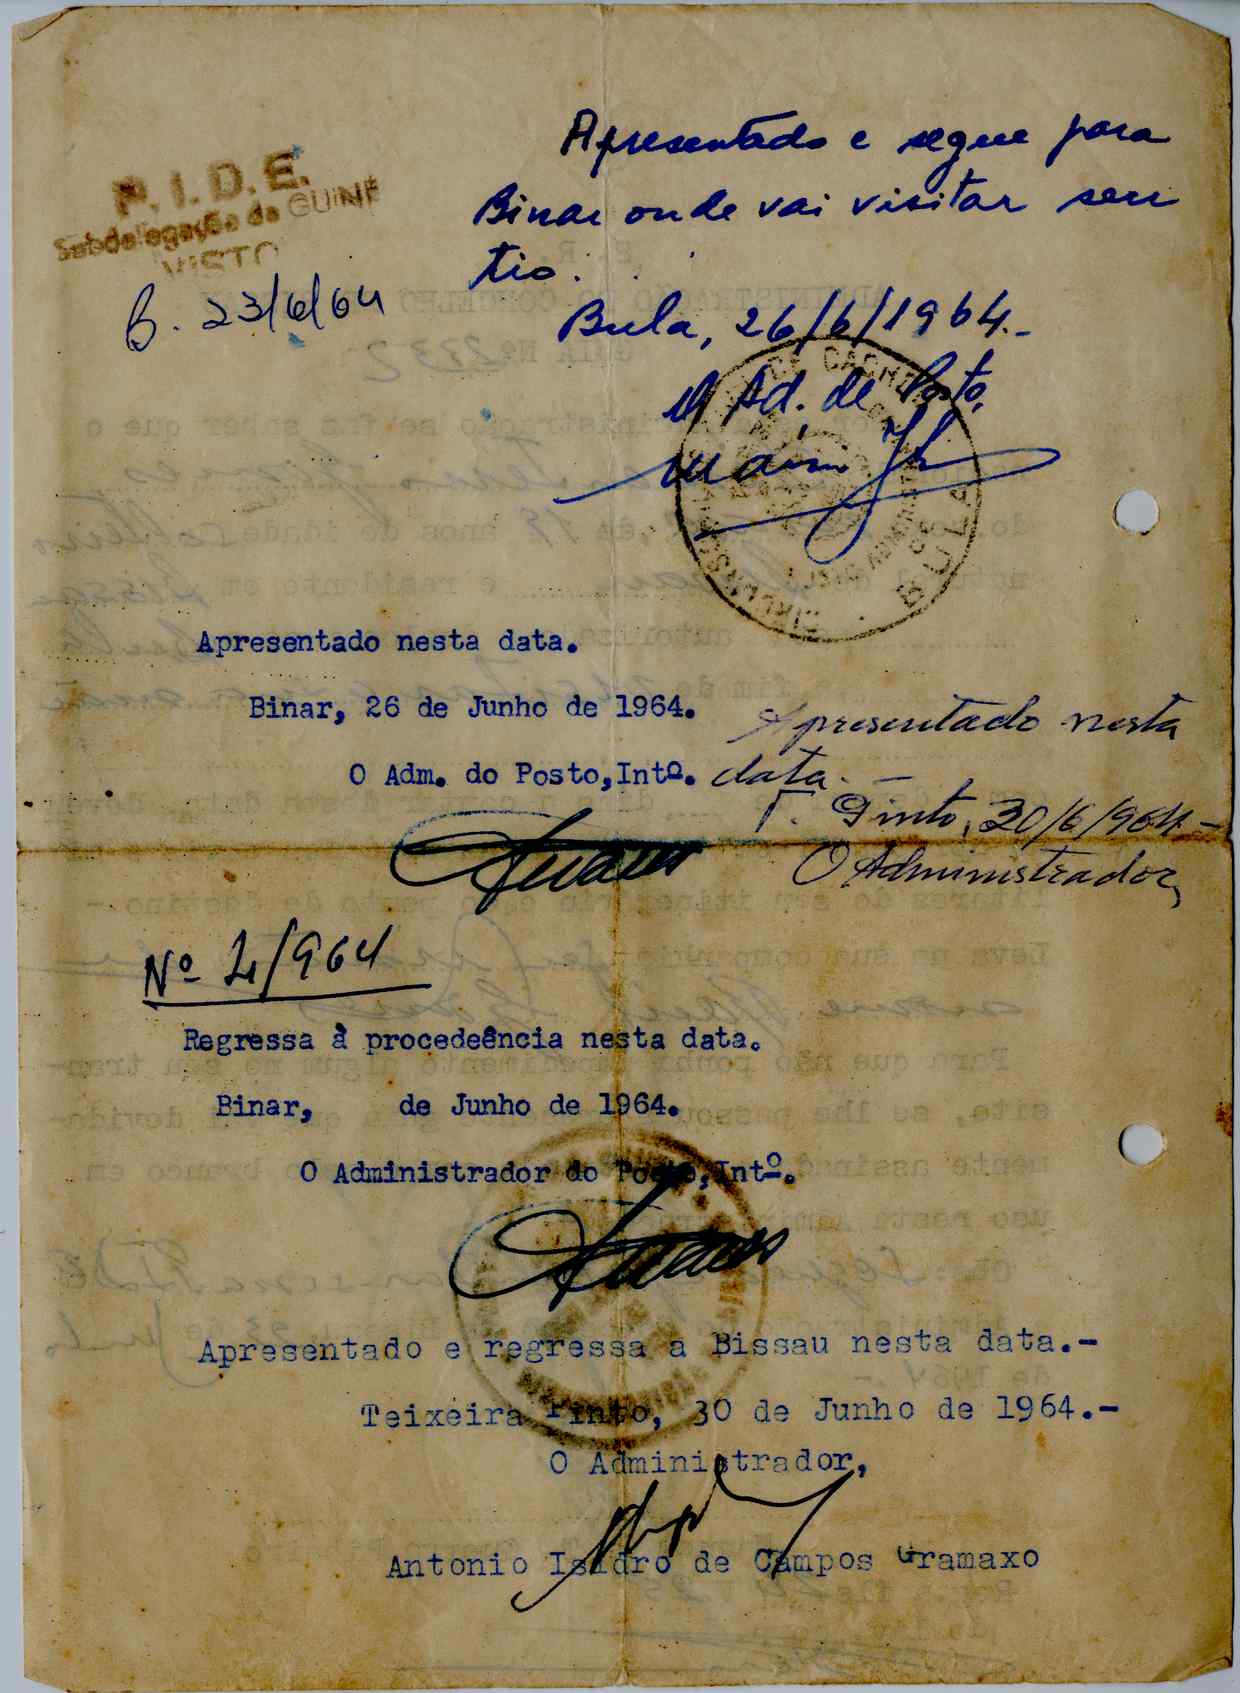 P. I. D. E.
Subdelegação da GUINÉ
VISTO
B. 23/6/64
Apresentado e segue para
Binar onde vai visitar seu
tio.
Bula, 26/6/1964.-
O Ad. de Posto,
BULA
Apresentado nesta data.
Binar, 26 de Junho de 1964.
O Adm. do Posto,Intº.
Apresentado nesta
data. —
T. Pinto, 30/6/964.-
O Administrador,
Nº 4/964
Regressa à procedeência nesta data.
Binar,    de Junho de 1964.
O Administrador do Posto,Intº.
Apresentado e regressa a Bissau nesta data.-
Teixeira Pinto, 30 de Junho de 1964.-
O Administrador,
Antonio Isidro de Campos Gramaxo